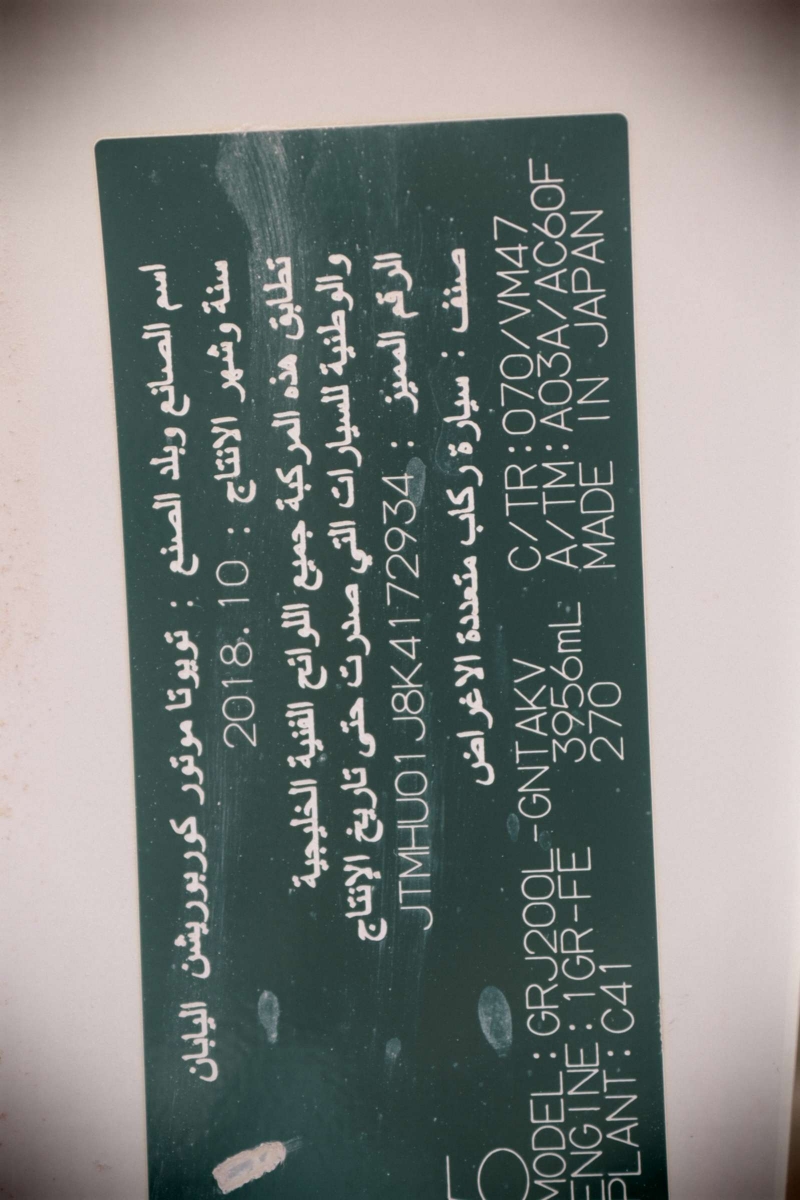 اسم الصانع وبلد الصنع : تويوتا موتور كوربوريشن اليابان
سنة وشهر الانتاج : 2018.10
تطابق هذه المركبة جميع اللوائح الفنية الخليجية
والوطنية للسيارات التي صدرت حتى تاريخ الإنتاج
الرقم المميز : JTMHU01J8K4172934
صنف : سيارة ركاب متعددة الاغراض
MODEL:GRJ200L-GNTAKV C/TR:070/VM47
ENGINE:1GR-FE 3956mL A/TM:A03A/AC60F
PLANT:C41 270 MADE IN JAPAN